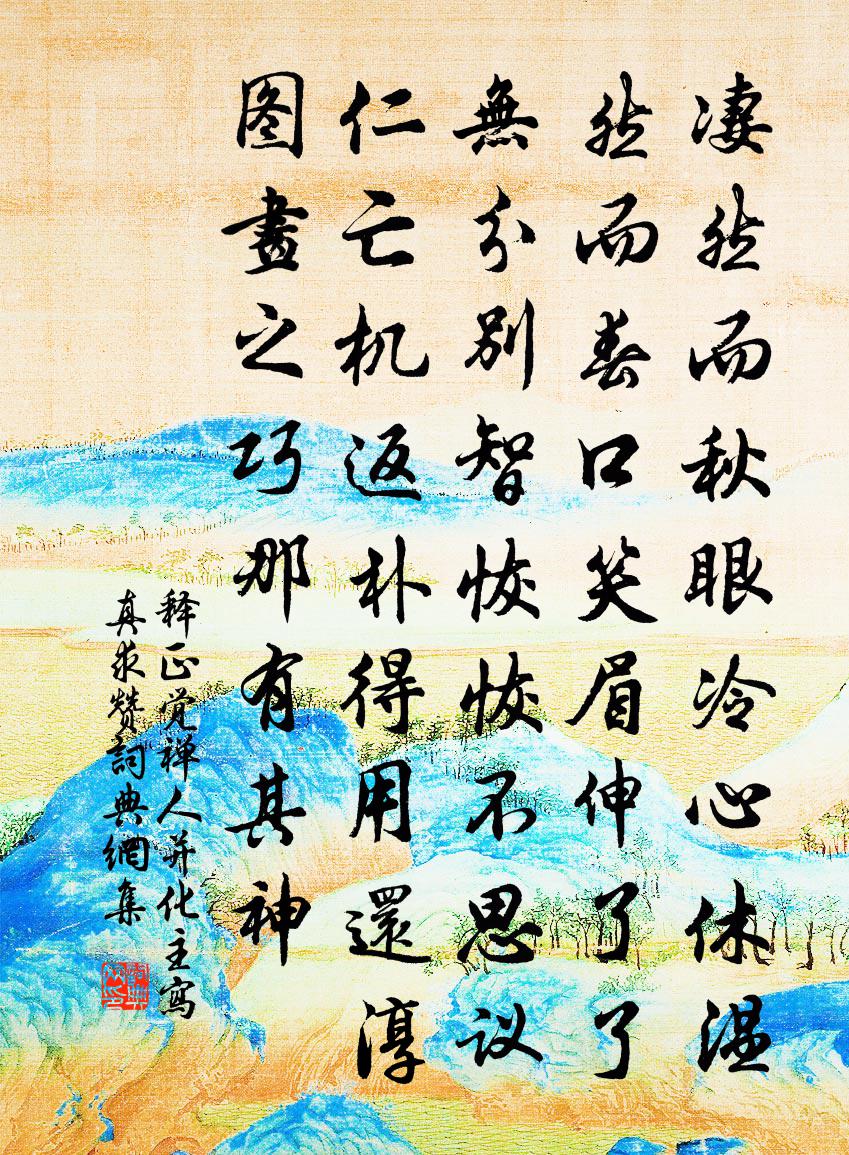 凄然而秋眼冷心休温
然而春口笑眉伸了了
無分别智恢恢不思议
仁亡机返朴得用還淳
图畫之巧那有其神
释正觉禅人并化主寫
真求赞詞典網集